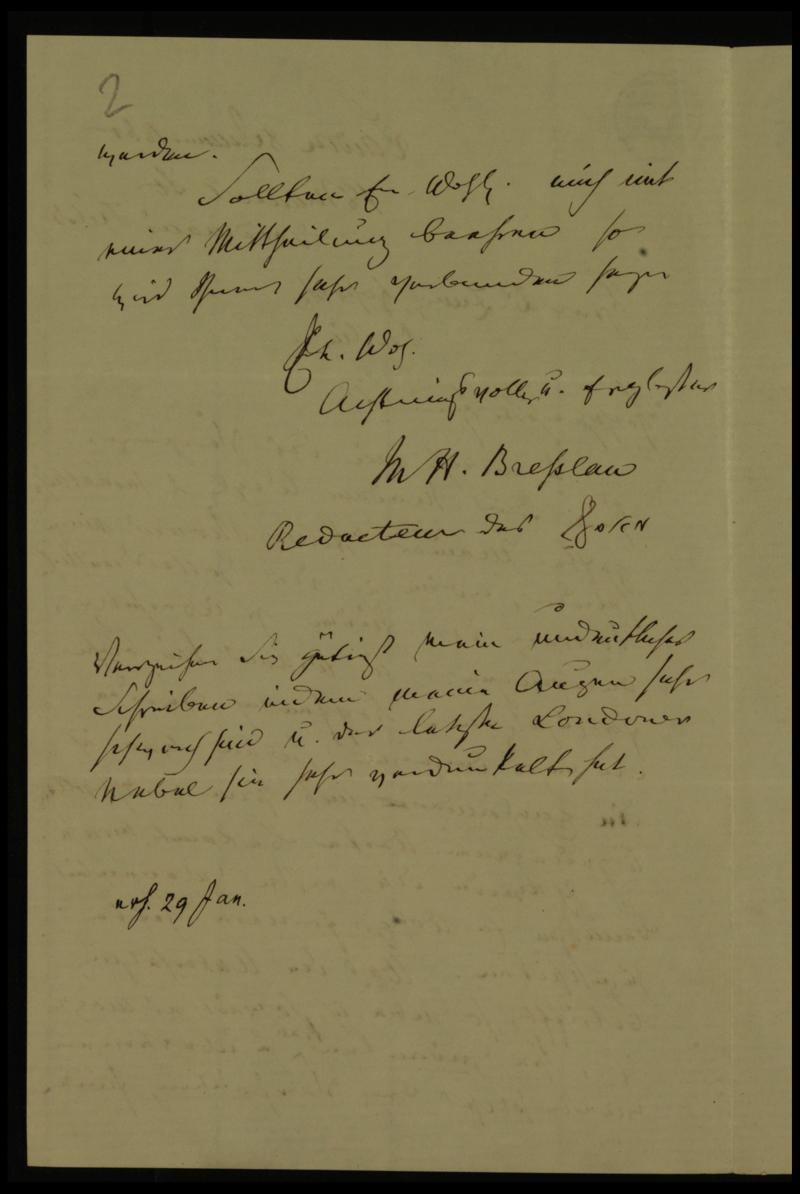 2
werden.
Sollten Ew. Wohlg. mich mit
einer Mittheilung beehren so
wird Ihnen sehr verbunden seyn
Ew. Wog.
Achtungsvoller u. Ergebster
M H. Breßlau
Redacteur des
Verzeihen Sie gütigst mein undeutliches
Schreiben indem meine Augen sehr
schwach sind u. der letzte Londoner
Nebel sie sehr verdunkelt hat.
29 Jan.